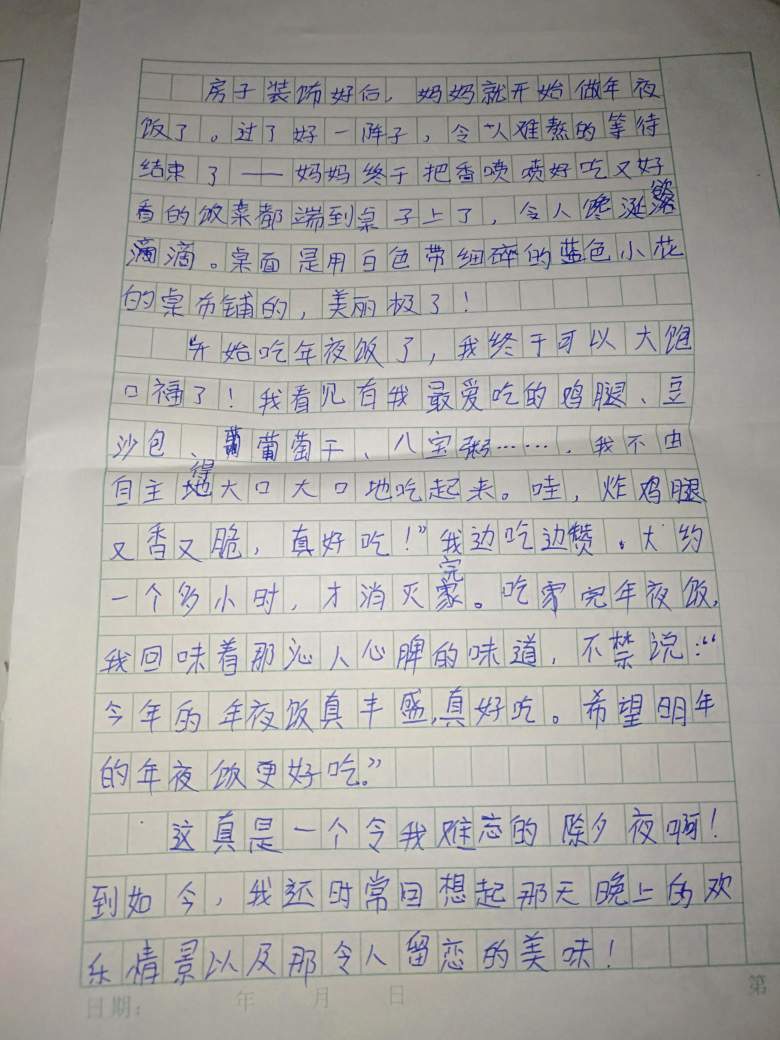 房子装饰好后，妈妈就开始做年夜
饭了。过了好一阵子，令人难熬的等待
结束了——妈妈终于把香喷喷好吃又好
看的饭菜都端到桌子上了，令人馋涎欲
滴。桌面是用白色带细碎的蓝色小花
的桌布铺的，美丽极了！
开始吃年夜饭了，我终于可以大饱
口福了！我看见有我最爱吃的鸡腿、豆
沙包、葡萄干、八宝粥……．我不由
得
自主地大口大口地吃起来。哇，炸鸡腿
又香又脆，真好吃！”我边吃边赞。大约
完
一个多小时，才消灭。吃完年夜饭，
我回味着那沁人心脾的味道，不禁说：“
今年的年夜饭真丰盛，真好吃。希望明年
的年夜饭更好吃。”
这真是一个令我难忘的除夕夜啊！
到如今，我还时常回想起那天晚上的欢
乐情景以及那令人留恋的美味！
日期： 年 月 日
第